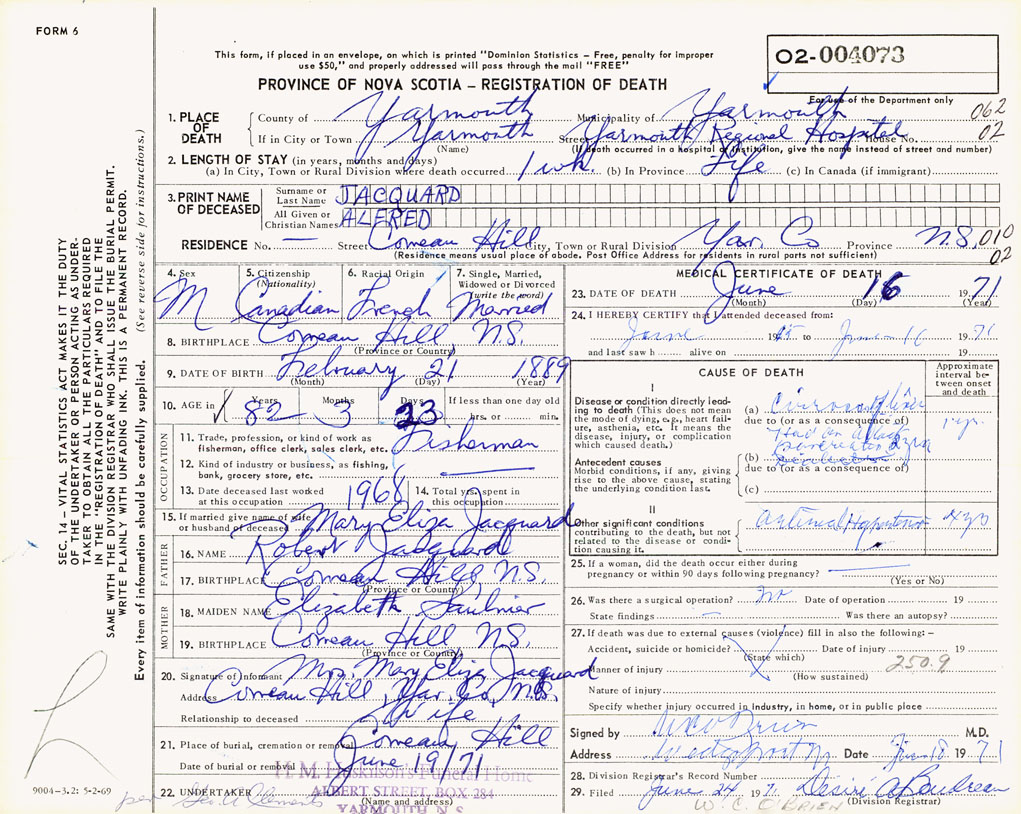 FORM 6
This form, if placed in an envelope, on which is printed "Dominion Statistics – Free, penalty for improper
use $50," and properly addressed will pass through the mail "FREE"
02-004073
For use of the Department only
PROVINCE OF NOVA SCOTIA – REGISTRATION OF DEATH
1. PLACE OF DEATH County of Yarmouth Municipality of Yarmouth 062
If in City or Town Yarmouth Street Yarmouth Regional Hospital House No. 02
(Name) (If death occurred in a hospital or institution, give the name instead of street and number)
2. LENGTH OF STAY (in years, months and days)
(a) In City, Town or Rural Division where death occurred 1 wk. (b) In Province Life (c) In Canada (if immigrant)
3. PRINT NAME OF DECEASED Surname or Last Name JACQUARD
All Given or Christian Names ALFRED
RESIDENCE No. — Street Comeau Hill City, Town or Rural Division Yar. Co Province N.S. 010
(Residence means usual place of abode. Post Office Address for residents in rural parts not sufficient) 02
4. Sex 5. Citizenship (Nationality) 6. Racial Origin 7. Single, Married, Widowed or Divorced (write the word)
M Canadian French Married
8. BIRTHPLACE Comeau Hill N.S.
(Province or Country)
9. DATE OF BIRTH February 21 1889
(Month) (Day) (Year)
10. AGE in Years Months Days If less than one day old
82 3 23 hrs. or min.
OCCUPATION
11. Trade, profession, or kind of work as fisherman, office clerk, sales clerk, etc. Fisherman
12. Kind of industry or business, as fishing, bank, grocery store, etc. —
13. Date deceased last worked at this occupation 1968 14. Total yrs. spent in this occupation
15. If married give name of wife or husband of deceased Mary Eliza Jacquard
FATHER
16. NAME Robert Jacquard
17. BIRTHPLACE Comeau Hill, N.S.
(Province or Country)
MOTHER
18. MAIDEN NAME Elizabeth Saulnier
19. BIRTHPLACE Comeau Hill N.S.
(Province or Country)
20. Signature of Informant Mrs. Mary Eliza Jacquard
Address Comeau Hill, Yar. Co. N.S.
Relationship to deceased Wife
21. Place of burial, cremation or removal Comeau Hill
Date of burial or removal June 19/71
22. UNDERTAKER
(Name and address)
H. M. Huskilson's Funeral Home
ALBERT STREET, BOX 284
YARMOUTH N.S.
per
MEDICAL CERTIFICATE OF DEATH
23. DATE OF DEATH June 16 1971
(Month) (Day) (Year)
24. I HEREBY CERTIFY that I attended deceased from:
June 19 to June 16 1971
and last saw h alive on 19
CAUSE OF DEATH
Approximate interval between onset and death
I
Disease or condition directly leading to death (This does not mean the mode of dying, e.g., heart failure, asthenia, etc. It means the disease, injury, or complication which caused death.)
(a) Cirrhosis of liver
due to (or as a consequence of)
Antecedent causes
Morbid conditions, if any, giving rise to the above cause, stating the underlying condition last.
(b)
due to (or as a consequence of)
(c)
II
Other significant conditions contributing to the death, but not related to the disease or condition causing it. Arterial Hypertension
25. If a woman, did the death occur either during pregnancy or within 90 days following pregnancy? —
(Yes or No)
26. Was there a surgical operation? no Date of operation 19
State findings — Was there an autopsy?
27. If death was due to external causes (violence) fill in also the following: –
Accident, suicide or homicide? Date of injury 19
(State which) 250.9
Manner of injury
(How sustained)
Nature of injury
Specify whether injury occurred in industry, in home, or in public place
Signed by M.D.
Address Date June 18 1971
28. Division Registrar's Record Number
29. Filed June 24 1971 Desiré A Boudreau
W. C. O'BRIEN (Division Registrar)
SEC. 14 – VITAL STATISTICS ACT MAKES IT THE DUTY
OF THE UNDERTAKER OR PERSON ACTING AS UNDER-
TAKER TO OBTAIN ALL THE PARTICULARS REQUIRED
IN THE "REGISTRATION OF DEATH" AND TO FILE THE
SAME WITH THE DIVISION REGISTRAR WHO SHALL ISSUE THE BURIAL PERMIT.
WRITE PLAINLY WITH UNFADING INK. THIS IS A PERMANENT RECORD.
Every item of information should be carefully supplied. (See reverse side for instructions.)
9004-3.2: 5-2-69